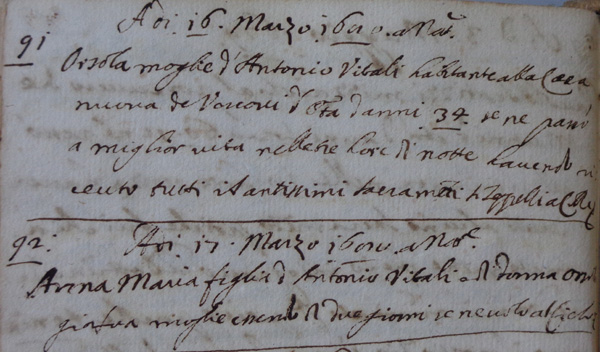 Adi. 16. Marzo 1600. a Nat.
91
Orsola moglie d'Antonio Vitali habitante alla Casa
nuova de Vosconi d'Età d'anni 34. se ne passò
a miglior vita nelle tre hore di notte havendo ri
ceuto tutti i santissimi sacramẽti
92. Adi. 17. Marzo a Nat.
Anna Maria figlia d'Antonio Vitali e di donna Orso
già sua moglie di due giorni se ne volò al Cielo